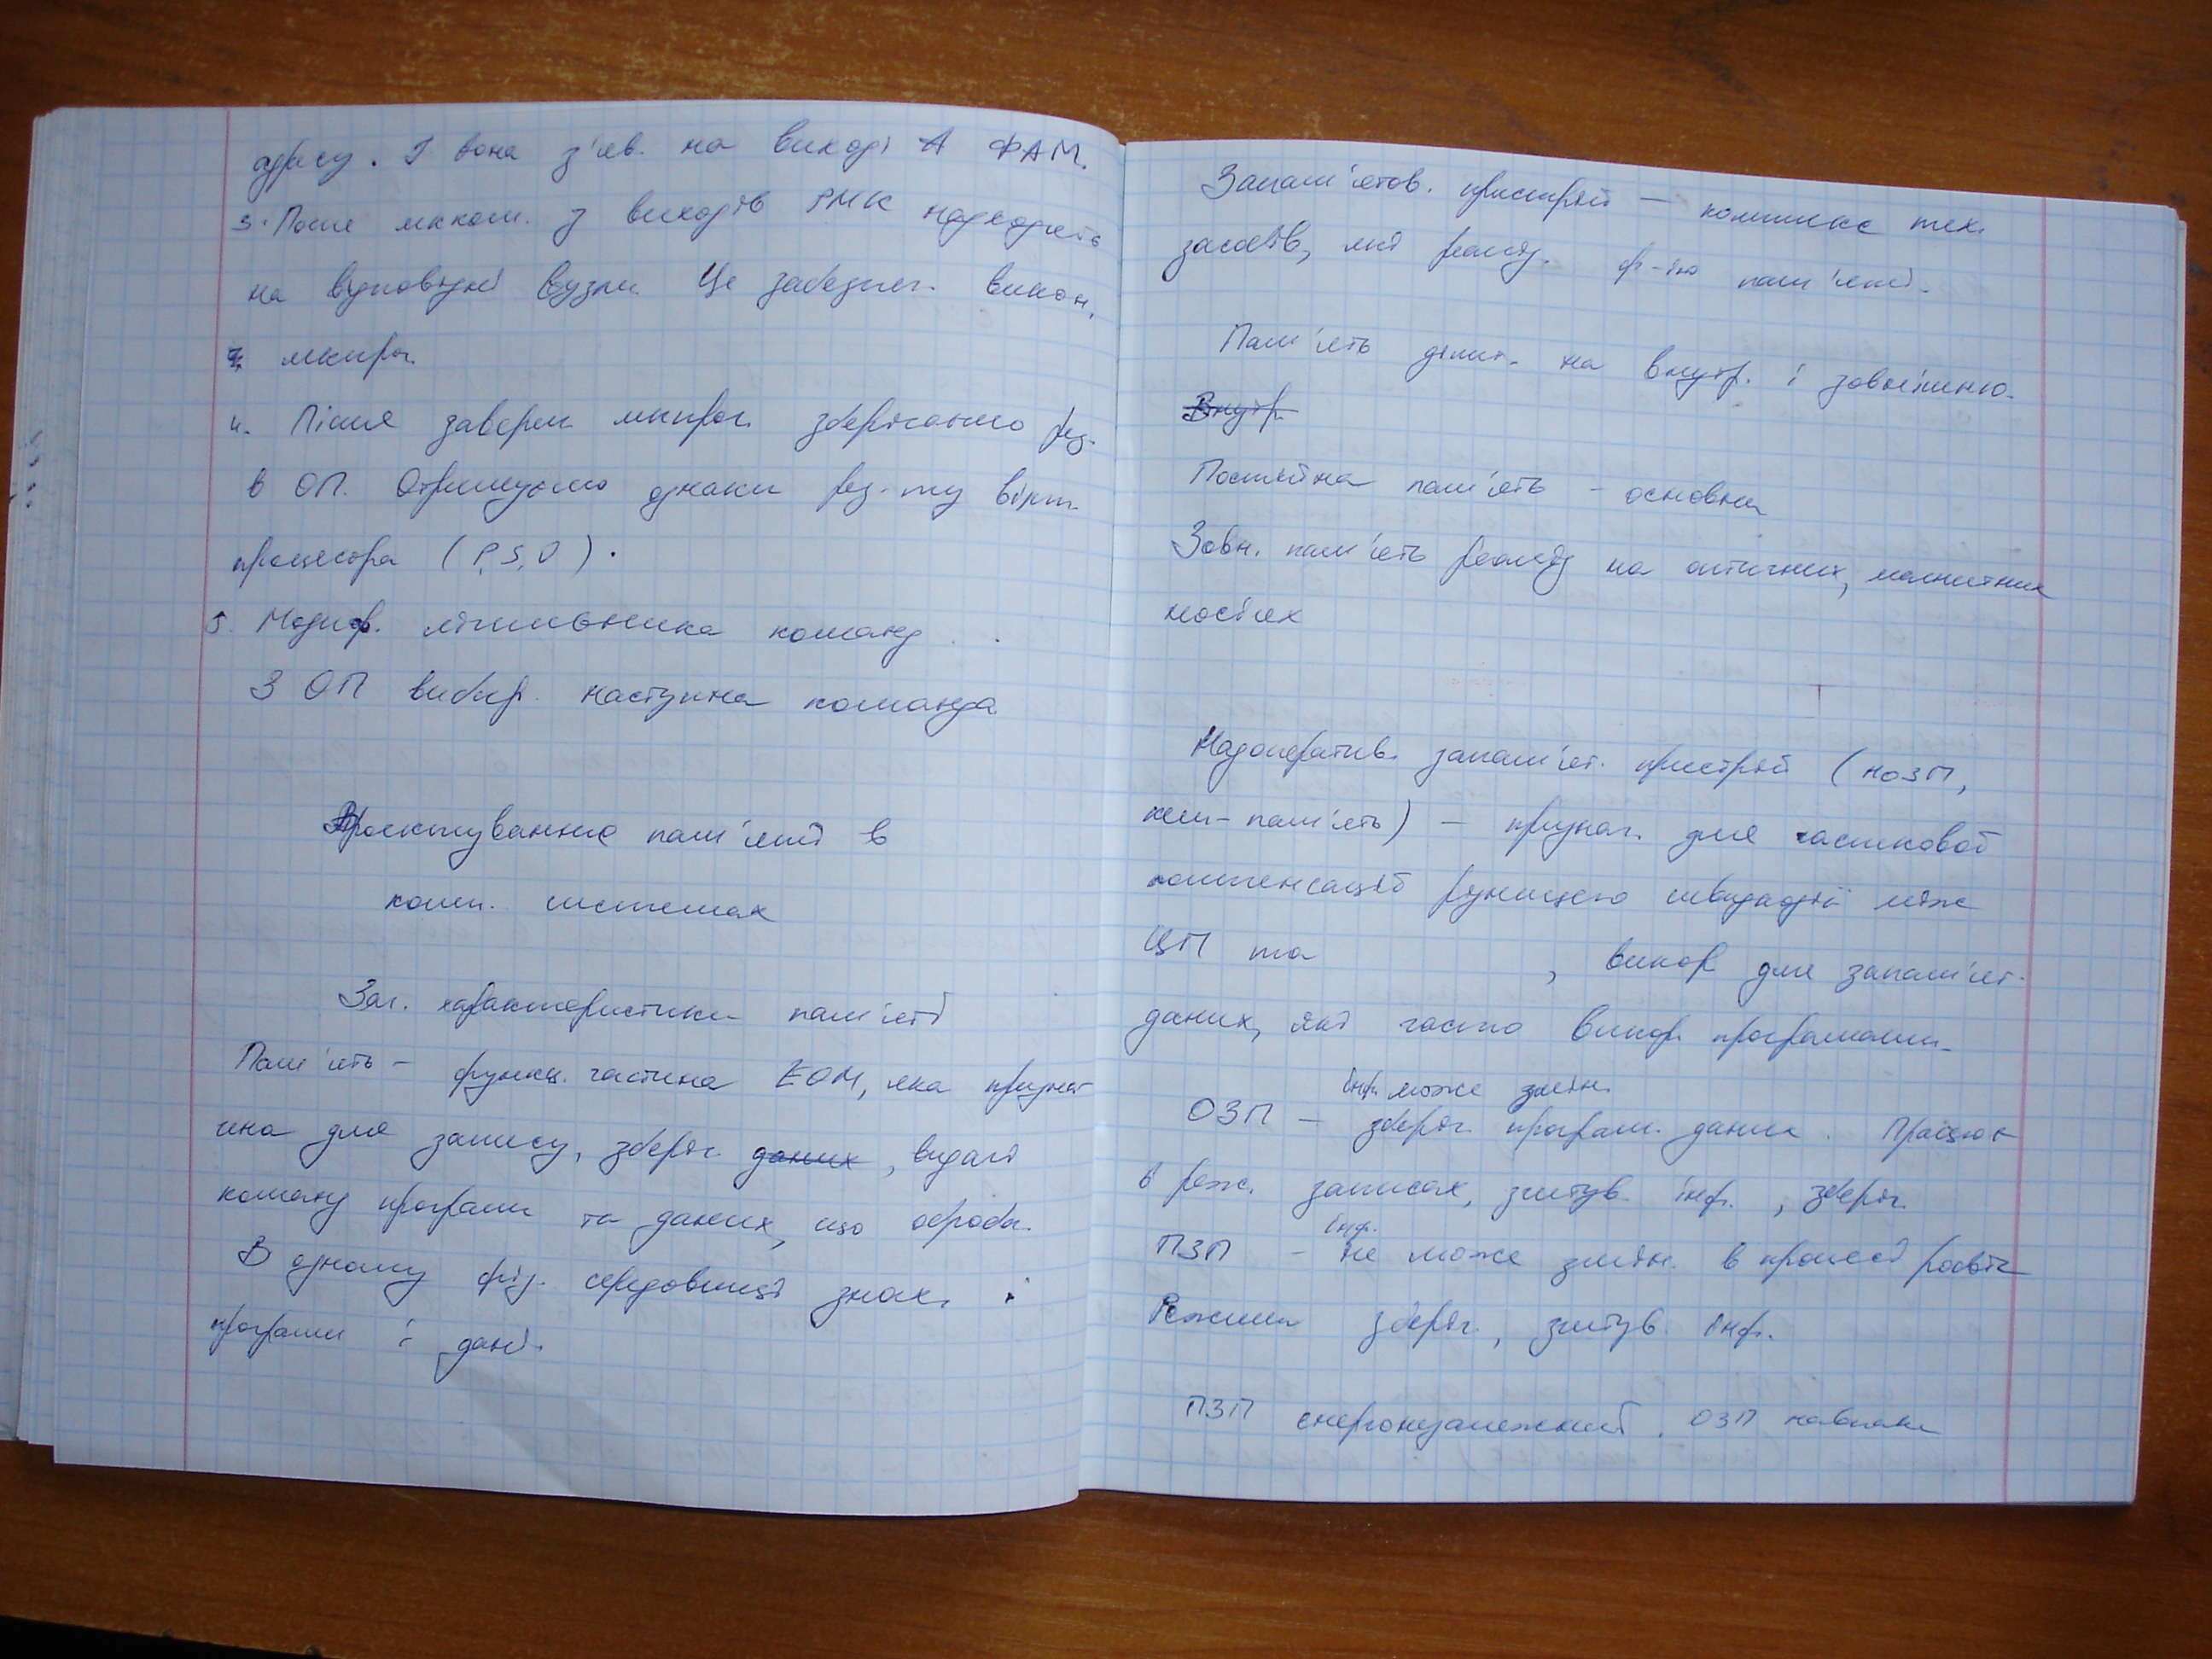 адресу. І вона з'яв. на виході А ФАМ.
3. Поля мкком. з виходів РМК надходять
на відповідні вузли. Це забезпеч. викон.
мкпрог.
4. Після заверш. мкпрог. зберігаємо рез.
в ОП. Отримуємо ознаки рез-ту вірт.
процесора (P, S, O).
5. Модиф. лічильника команд.
З ОП вибир. наступна команда
Проектування пам'яті в
комп. системах
Заг. характеристики пам'яті
Пам'ять – функц. частина ЕОМ, яка признач
ена для запису, зберіг. даних, видачі
команд програм та даних, що оброб.
В одному фіз. середовищі знах.
програми і дані.
Запам'ятов. пристрій – комплекс тех.
засобів, які реаліз. ф-ію пам'яті.
Пам'ять діл. на внутр. і зовнішню.
Внутр.
Постійна пам'ять – основна
Зовн. пам'ять реаліз на оптичних, магнитних
носіях
Надоператив. запам'ят. пристрій (НОЗП,
кеш-пам'ять) – признач. для часткової
компенсації різницею швидкодії між
ЦП та , викор для запам'ят.
даних, які часто викор. програмами.
інф. може змін.
ОЗП – зберіг. програм. даних. Працює
в реж. записах, зчитув. інф., зберіг.
інф.
ПЗП – не може змін. в процесі роботи
Режими зберіг., зчитув. інф.
ПЗП енергонезалежний. ОЗП навпаки